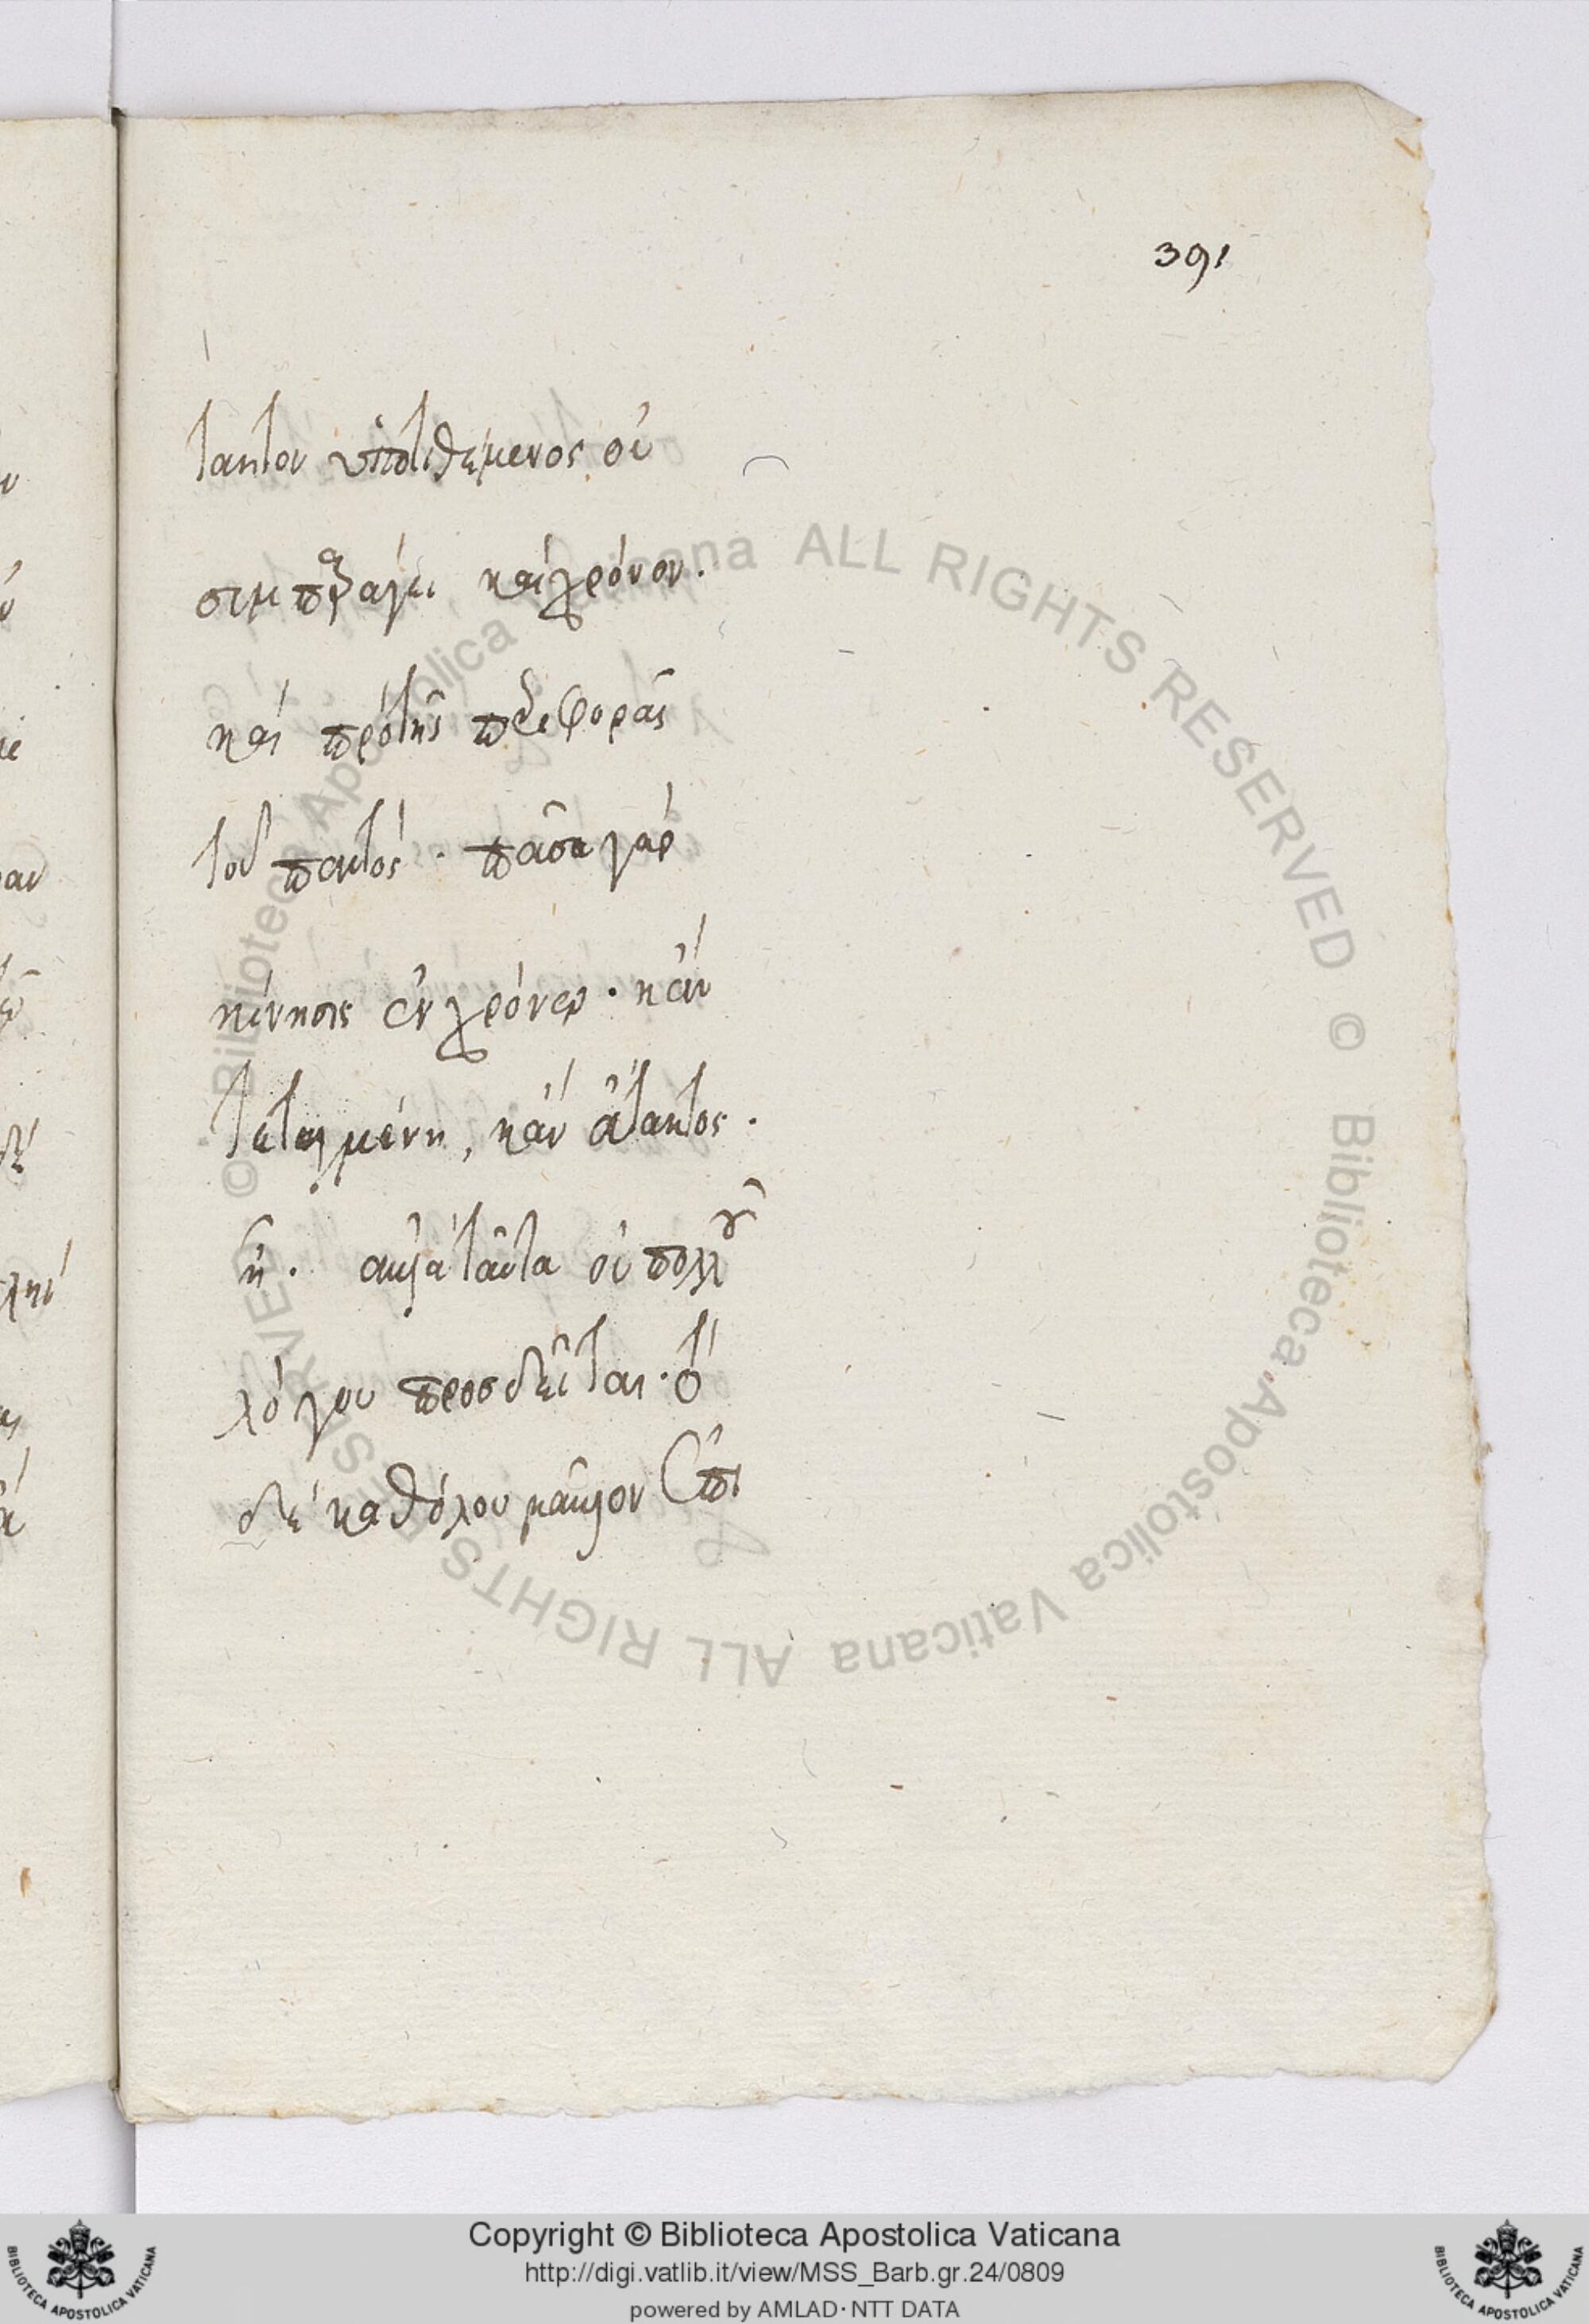 391
τακτον ὑποτιθέμενος οὐ
συμπαράγει καὶ χρόνον.
καὶ πρὸ τῆς περιφορᾶς
τοῦ παντός · πᾶσα γὰρ
κίνησις ἐν χρόνῳ · κἂν
τεταγμένη, κἂν ἄτακτος ·
ᾖ · ταῦτα οὐ πολλοῦ
λόγου προσδεῖται · τὸ
δὲ καθόλου μᾶλλον ἐπι
© Biblioteca Apostolica Vaticana ALL RIGHTS RESERVED © Biblioteca Apostolica Vaticana ALL RIGHTS RESERVED
Copyright © Biblioteca Apostolica Vaticana
http://digi.vatlib.it/view/MSS_Barb.gr.24/0809
powered by AMLAD · NTT DATA
BIBLIOTECA APOSTOLICA VATICANA
BIBLIOTECA APOSTOLICA VATICANA